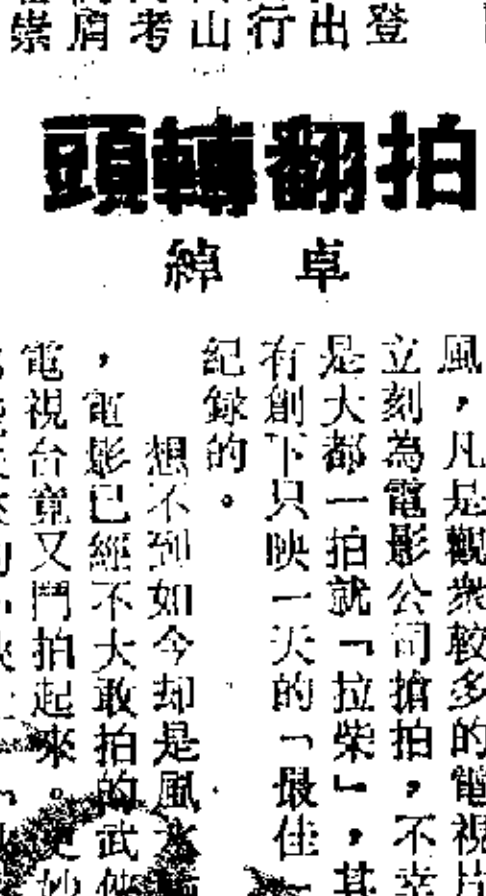 登
出
行
山
考
肩
崇
拍翻轉頭
卓綽
風，凡是觀衆較多的電視片
立刻為電影公司搶拍，不幸
是大都一拍就「拉柴」，其
有創下只映一天的「最佳
紀錄的。
想不到如今却是風水
，電影已經不大敢拍的武俠
電視台竟又鬥拍起來。更妙